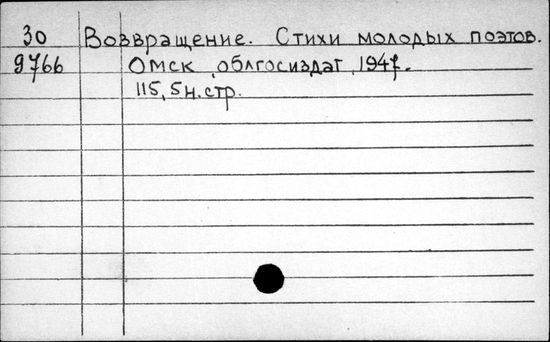 30 Возвращение. Стихи молодых поэтов.
9766 Омск, облгосиздат, 1947.
115, 5н.стр.